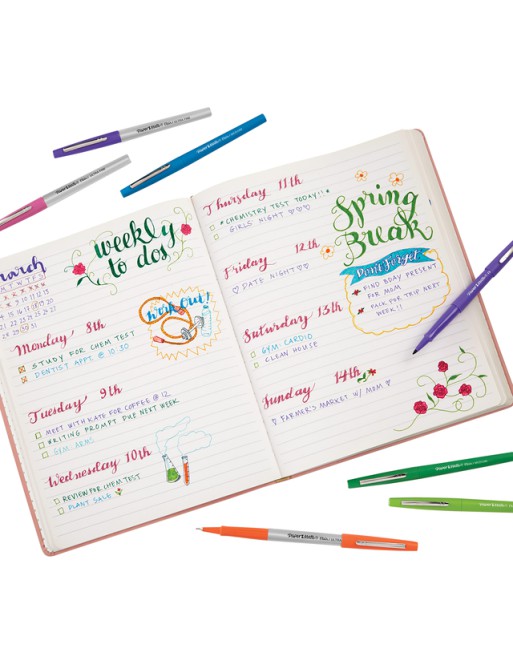 weekly
to dos
Monday 8th
STUDY FOR CHEM TEST
DENTIST APPT. @ 10:30
Work Out!
Tuesday 9th
MEET WITH KATE FOR COFFEE @ 12
WRITING PROMPT DUE NEXT WEEK
GYM: ARMS
Wednesday 10th
REVIEW FOR CHEM TEST
PLANT SALE
Thursday 11th
*CHEMISTRY TEST TODAY!!*
GIRLS NIGHT ♡♡♡
Friday 12th
♡ DATE NIGHT ♡♡
Saturday 13th
GYM: CARDIO
CLEAN HOUSE
Sunday 14th
♡ FARMER'S MARKET W/ MOM ♡
Spring
Break
Don't Forget
FIND BDAY PRESENT
FOR MOM
PACK FOR TRIP NEXT
WEEK!!
Paper Mate
Paper Mate
Paper Mate
Paper Mate
Paper Mate
Paper Mate